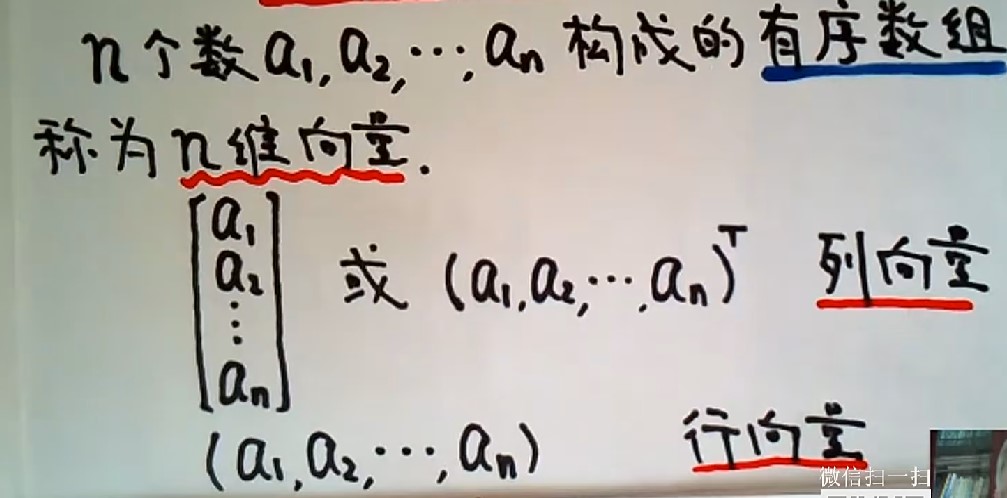 n个数a₁,a₂,…,aₙ构成的有序数组
称为n维向量.
[a₁
a₂
⋮
aₙ]
或 (a₁,a₂,…,aₙ)ᵀ 列向量
(a₁,a₂,…,aₙ) 行向量
微信扫一扫